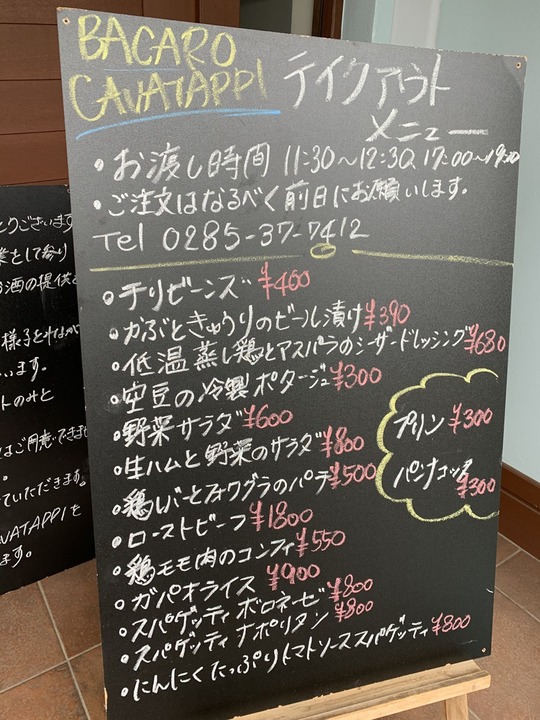 BACARO
CAVATAPPI テイクアウト
メニュー
・お渡し時間 11:30〜12:30、17:00〜19:00
・ご注文はなるべく前日にお願いします。
Tel 0285-37-7412
・チリビーンズ ¥460
・かぶときゅうりのビール漬け ¥390
・低温蒸し鶏とアスパラのシーザードレッシング ¥680
・空豆の冷製ポタージュ ¥300
・野菜サラダ ¥600
・生ハムと野菜のサラダ ¥800
・鶏レバーとフォワグラのパテ ¥500
・ローストビーフ ¥1800
・鶏モモ肉のコンフィ ¥550
・ガパオライス ¥900
・スパゲッティ ボロネーゼ ¥800
・スパゲッティ ナポリタン ¥800
・にんにくたっぷりトマトソーススパゲッティ ¥800
プリン ¥300
パンナコッタ
¥300
とうございます
業として祭り
お酒の提供を
います。
トのみと
はご用意できませ
ていただきます。
AVATAPPIを
す。